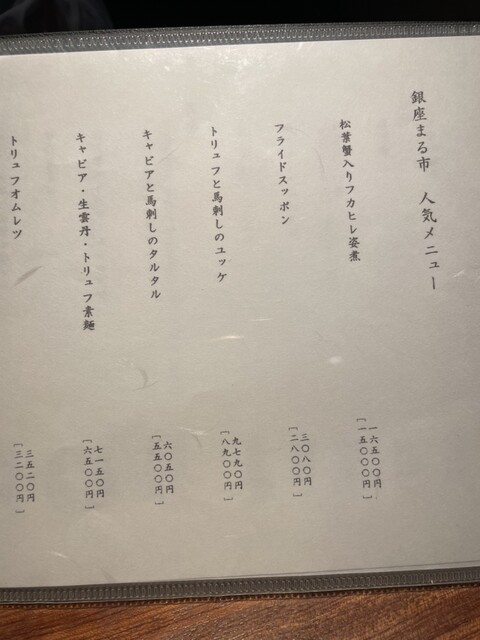 銀座まる市　人気メニュー
松葉蟹入りフカヒレ姿煮
一六五〇〇円
［一五〇〇〇円］
フライドスッポン
三〇八〇円
［二八〇〇円］
トリュフと馬刺しのユッケ
九七九〇円
［八九〇〇円］
キャビアと馬刺しのタルタル
六〇五〇円
［五五〇〇円］
キャビア・生雲丹・トリュフ素麺
七一五〇円
［六五〇〇円］
トリュフオムレツ
三五二〇円
［三二〇〇円］